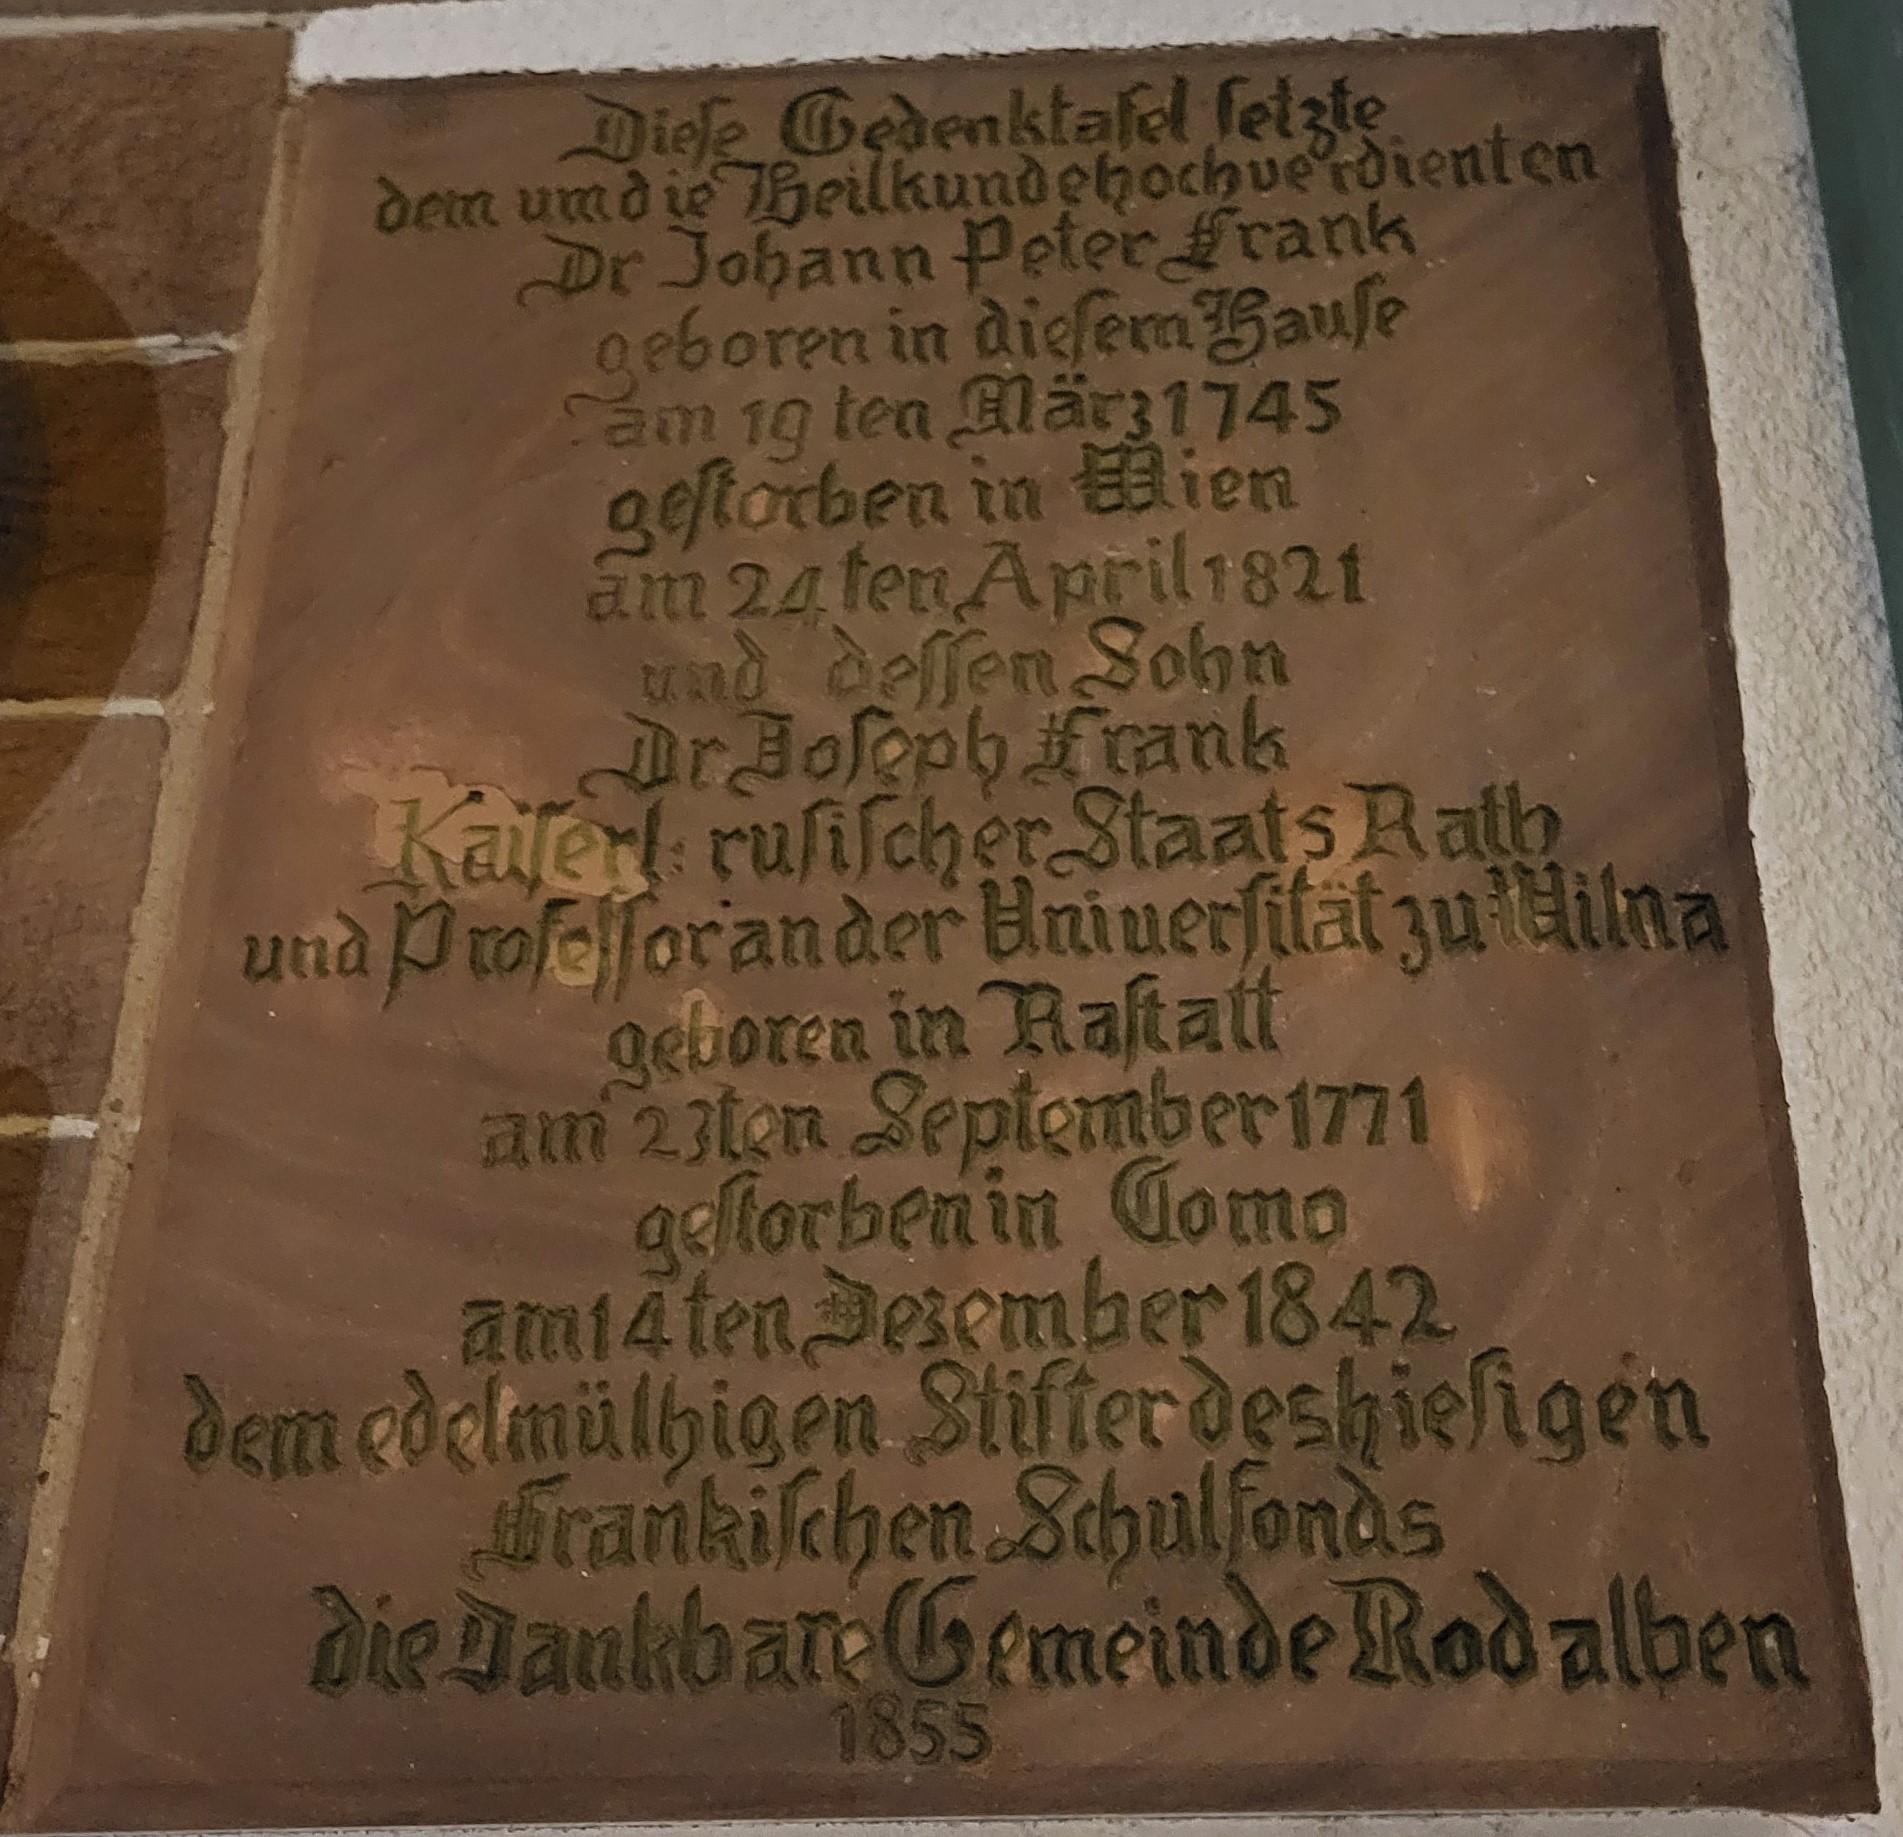 Diese Gedenktafel setzte
dem um die Heilkunde hochverdienten
Dr Johann Peter Frank
geboren in diesem Hause
am 19 ten März 1745
gestorben in Wien
am 24 ten April 1821
und dessen Sohn
Dr Joseph Frank
Kaiserl: rusischer Staats Rath
und Professor an der Universität zu Wilna
geboren in Rastatt
am 23ten September 1771
gestorben in Como
am 14 ten Dezember 1842
dem edelmüthigen Stifter des hiesigen
Frankischen Schulfonds
die Dankbare Gemeinde Rodalben
1855